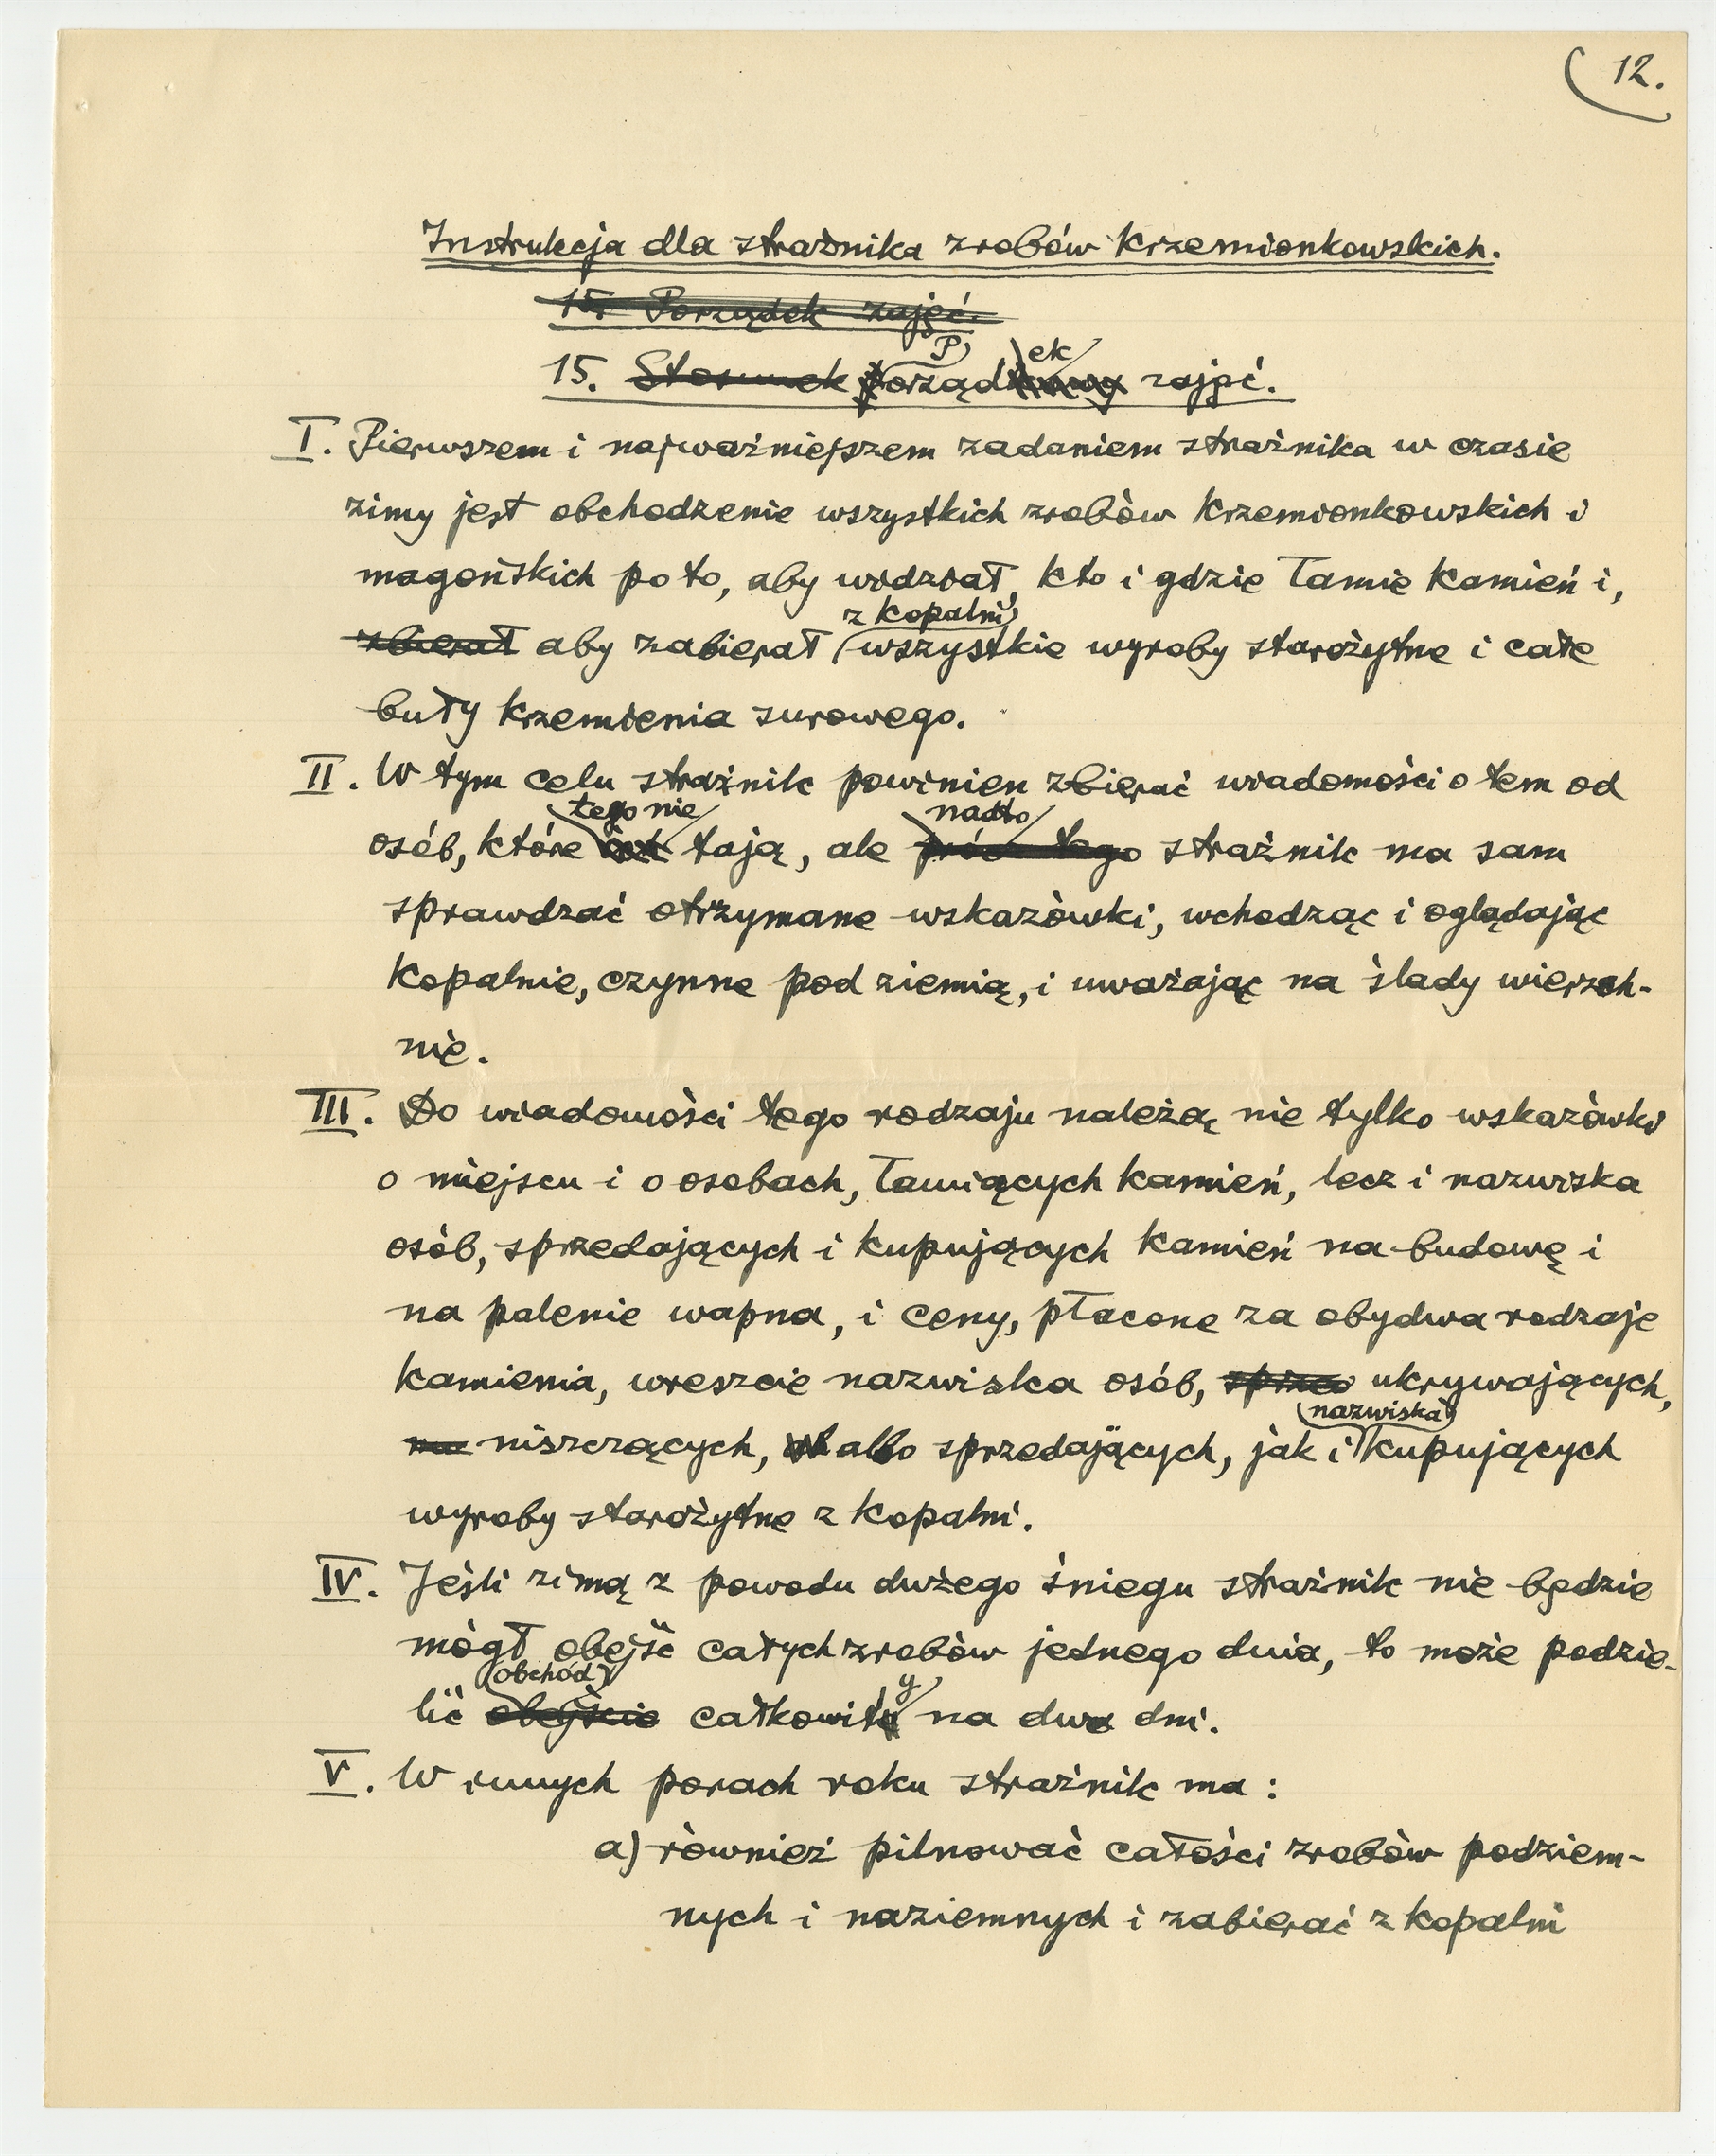 12.
Instrukcja dla strażnika zrobów krzemionkowskich.
15. Porządek zajęć.
15. Stosunek Porządek zajęć.
I. Pierwszem i najważniejszem zadaniem strażnika w czasie
zimy jest obchodzenie wszystkich zrobów krzemionkowskich i
magońskich po to, aby widział, kto i gdzie łamie kamień i,
z kopalni
zbierał aby zabierał wszystkie wyroby starożytne i całe
buły krzemienia surowego.
II. W tym celu strażnik powinien zbierać wiadomości o tem od
tego nie nadto
osób, które tają, ale prócz tego strażnik ma sam
sprawdzać otrzymane wskazówki, wchodząc i oglądając
kopalnie, czynne pod ziemią, i uważając na ślady wierzch-
nie.
III. Do wiadomości tego rodzaju należą nie tylko wskazówki
o miejscu i o osobach, łamiących kamień, lecz i nazwiska
osób, sprzedających i kupujących kamień na budowę i
na palenie wapna, i ceny, płacone za obydwa rodzaje
kamienia, wreszcie nazwiska osób, ukrywających,
nazwiska
niszczących, albo sprzedających, jak i kupujących
wyroby starożytne z kopalni.
IV. Jeśli zimą z powodu dużego śniegu strażnik nie będzie
mógł obejść całych zrobów jednego dnia, to może podzie-
obchód
lić obejście całkowity na dwa dni.
V. W innych porach roku strażnik ma :
a) również pilnować całości zrobów podziem-
nych i naziemnych i zabierać z kopalni